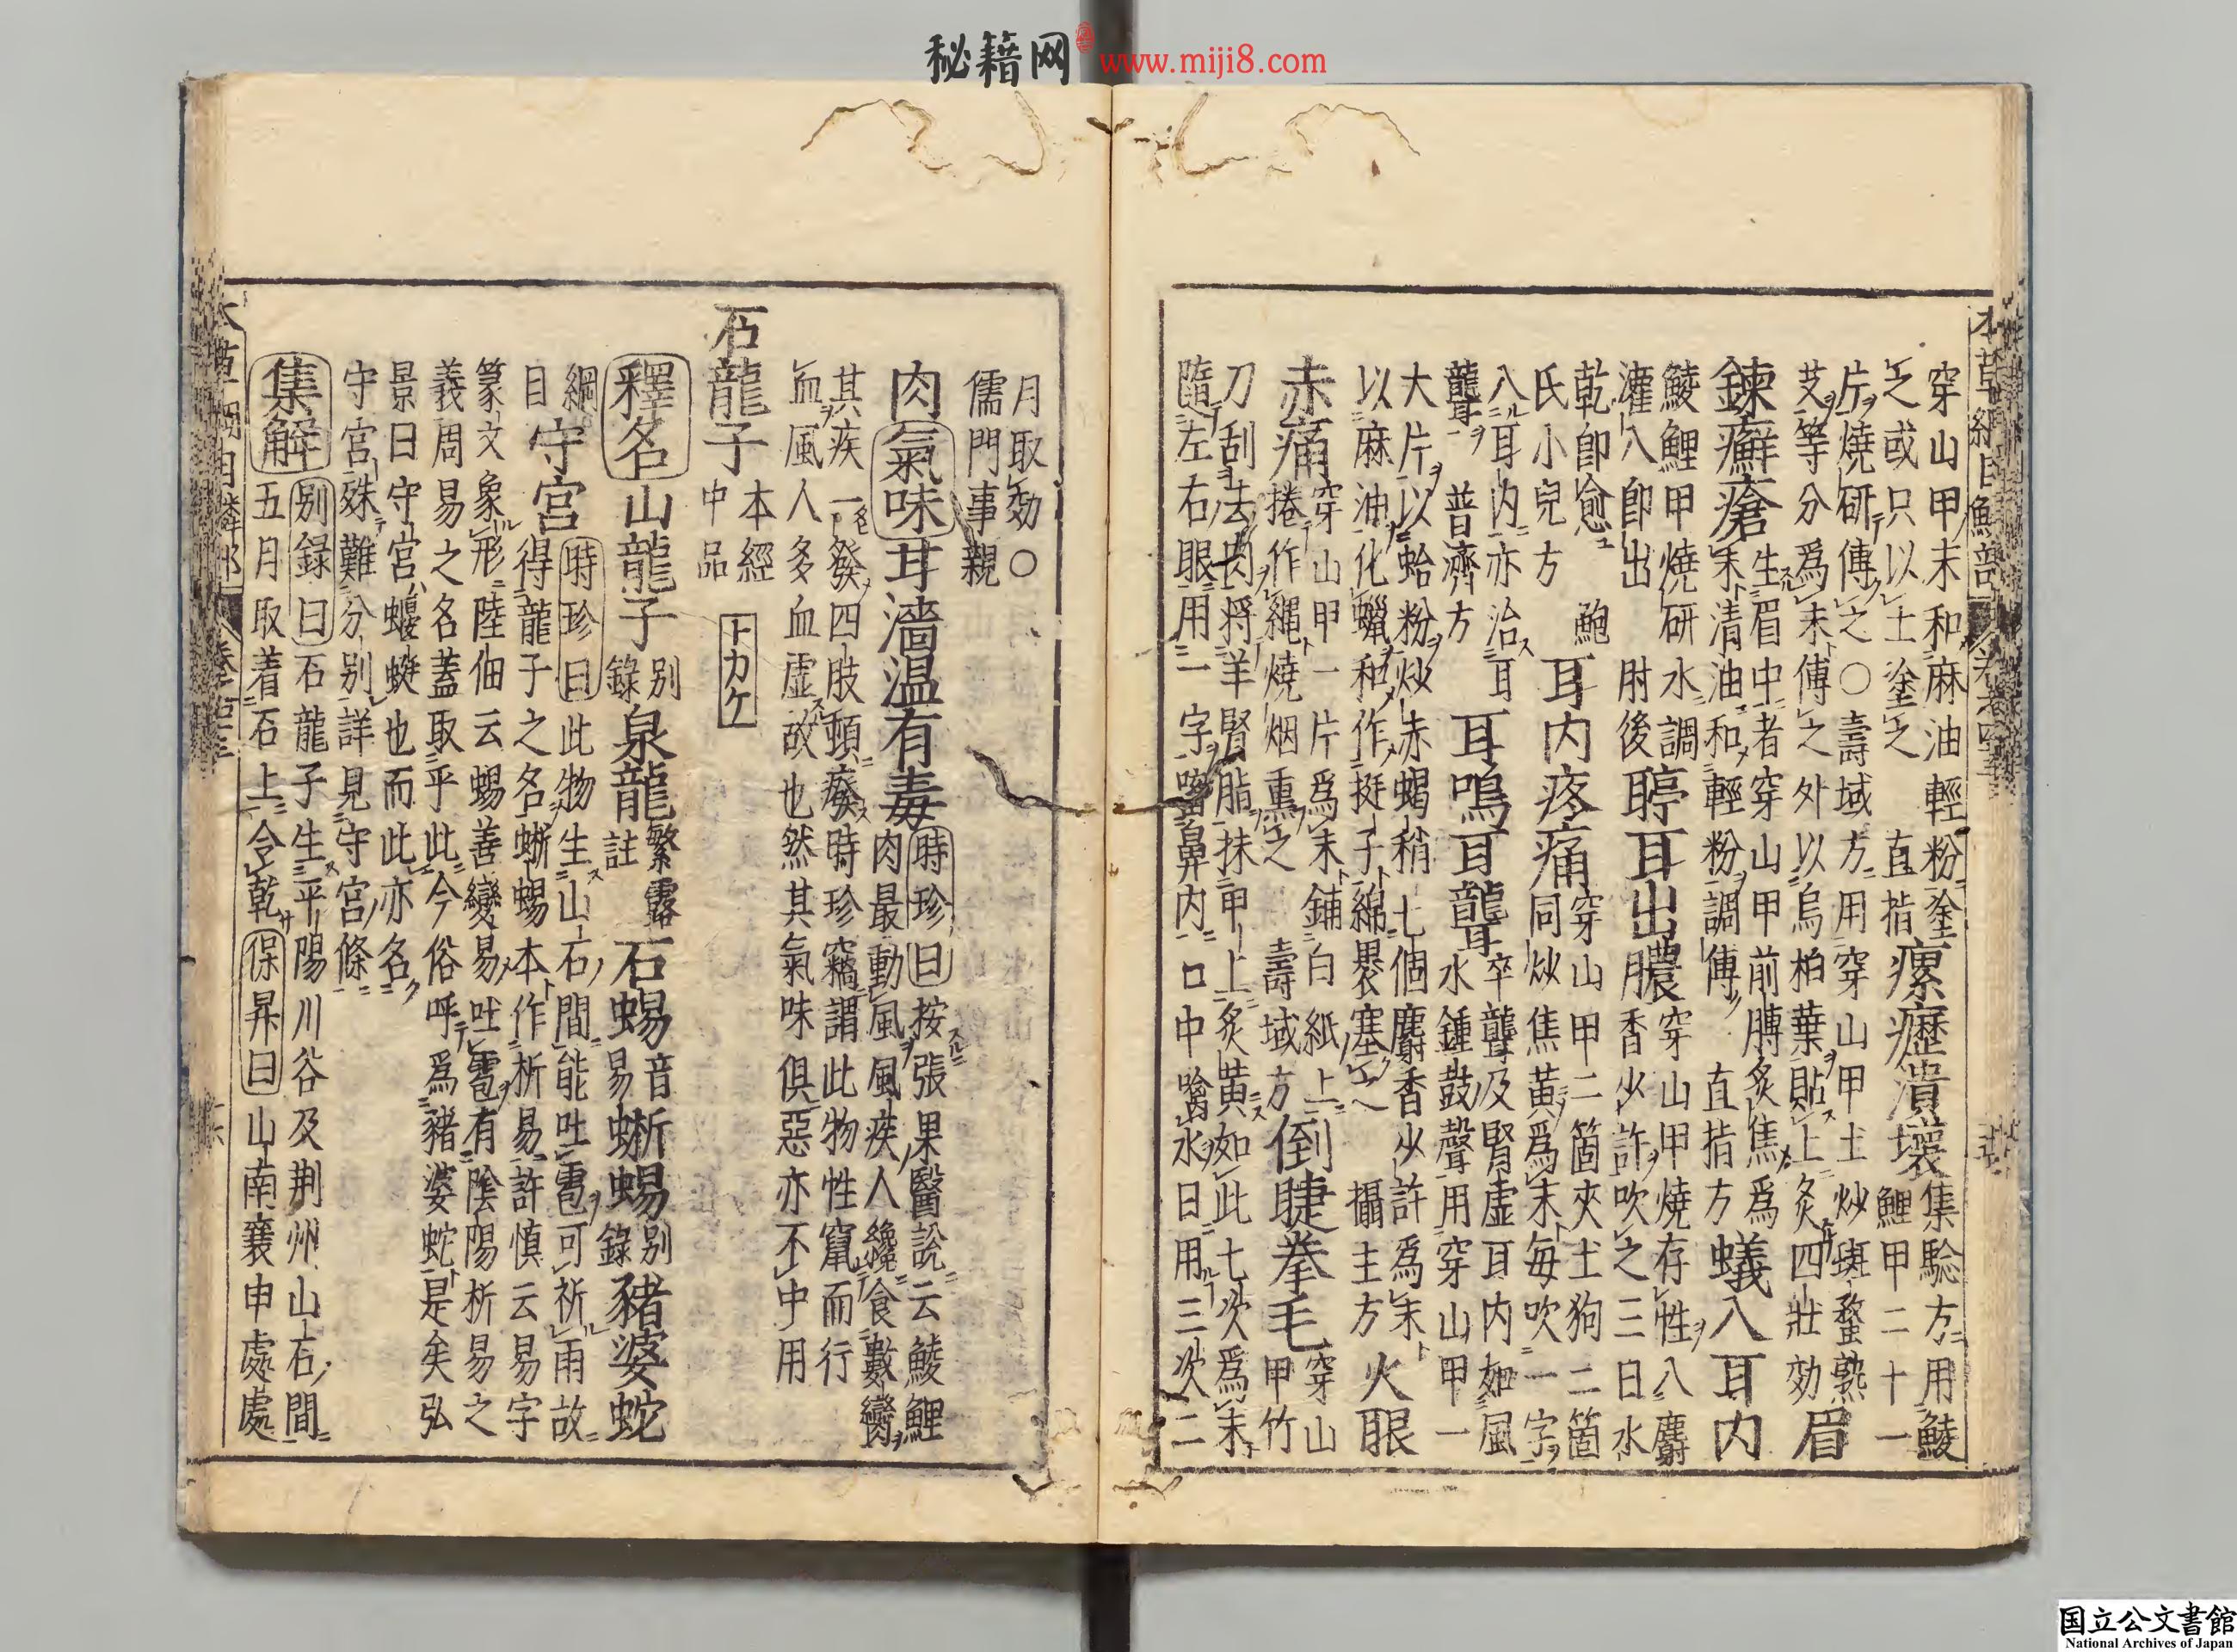 本草綱目鱗部 卷之四十三
穿山甲末和麻油輕粉塗
之或只以土塗之　直指
瘰癧潰壞
集驗方用鯪
鯉甲二十一
片燒研傅之○壽域方用穿山甲土炒斑蝥熟
艾等分爲末傅之外以烏桕葉貼上灸四壯効
眉
鍊癬瘡
生眉中者穿山甲前膊炙焦爲
末清油和輕粉調傅　直指方
蟻入耳内
鯪鯉甲燒研水調
灌入即出　肘後
聤耳出膿
穿山甲燒存性入麝
香少許吹之三日水
乾即愈　鮑
氏小兒方
耳内疼痛
穿山甲二箇夾土狗二箇
同炒焦黃爲末每吹一字
入耳内亦治耳
聾　普濟方
耳鳴耳聾
卒聾及腎虛耳内如風
水鍾鼓聲用穿山甲一
大片以蛤粉炒赤蝎稍七個麝香少許爲末
以麻油化蠟和作挺子綿褁塞之　攝主方
火眼
赤痛
穿山甲一片爲末鋪白紙上
捲作繩燒烟熏之　壽域方
倒睫拳毛
穿山
甲竹
刀刮去肉將羊腎脂抹甲上炙黃如此七次爲末
隨左右眼用一字㗜鼻内口中噙水日用三次二
月取効○
儒門事親
肉氣味甘濇温有毒
時珍曰按張果醫說云鯪鯉
肉最動風風疾人纔食數臠
其疾一發四肢頓癈時珍竊謂此物性竄而行
血風人多血虛故也然其氣味俱惡亦不中用
石龍子
本經
中品
トカケ
釋名山龍子
别
錄
泉龍
繁露
註
石蜴
音
易
蜥蜴
别
錄
豬婆蛇
綱
目
守宮
時珍曰此物生山石間能吐雹可祈雨故
得龍子之名蜥蜴本作析易許慎云易字
篆文象形陸佃云蜴善變易吐雹有陰陽析易之
義周易之名蓋取乎此今俗呼爲豬婆蛇是矣弘
景曰守宮蝘蜓也而此亦名
守宮殊難分别詳見守宮條
集解
别録曰石龍子生平陽川谷及荆州山石間
五月取着石上令乾保昇曰山南襄申處處
本草綱目鱗部 卷四十三
秘籍网 www.miji8.com
国立公文書館
National Archives of Japan